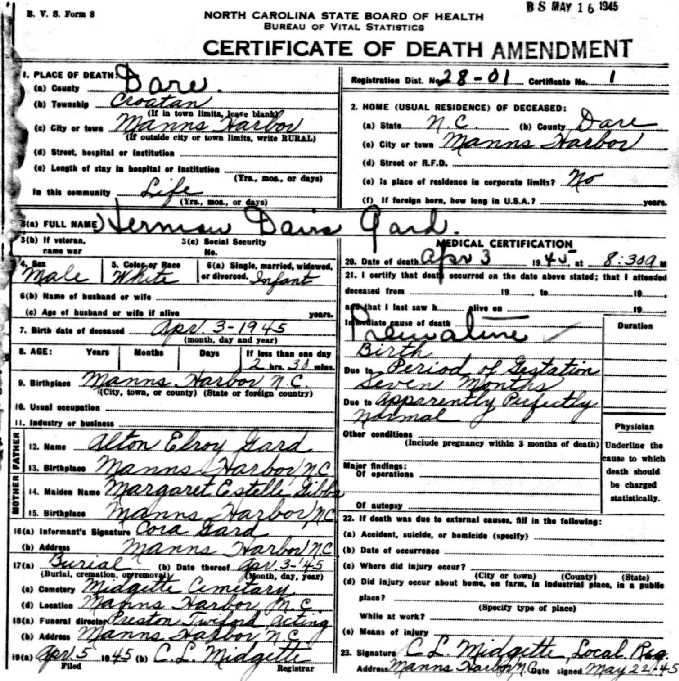 B. V. S. Form 8
B S MAY 16 1945
NORTH CAROLINA STATE BOARD OF HEALTH
BUREAU OF VITAL STATISTICS
CERTIFICATE OF DEATH AMENDMENT
1. PLACE OF DEATH:
(a) County Dare
(b) Township Croatan
(If in town limits, leave blank)
(c) City or town Manns Harbor
(If outside city or town limits, write RURAL)
(d) Street, hospital or institution
(e) Length of stay in hospital or institution
(Yrs., mos., or days)
In this community Life
(Yrs., mos., or days)
Registration Dist. No. 28-01 Certificate No. 1
2. HOME (USUAL RESIDENCE) OF DECEASED:
(a) State N.C. (b) County Dare
(c) City or town Manns Harbor
(d) Street or R.F.D.
(e) Is place of residence in corporate limits? No
(f) If foreign born, how long in U.S.A.? years.
3(a) FULL NAME Herman Davis Gard.
3(b) If veteran, name war
3(c) Social Security No.
4. Sex Male
5. Color or Race White
6(a) Single, married, widowed, or divorced. Infant
6(b) Name of husband or wife
(c) Age of husband or wife if alive years.
7. Birth date of deceased Apr 3-1945
(month, day and year)
8. AGE: Years Months Days If less than one day
2 hrs. 30 min.
9. Birthplace Manns Harbor N.C.
(City, town, or county) (State or foreign country)
10. Usual occupation
11. Industry or business
FATHER
12. Name Alton Elroy Gard
13. Birthplace Manns Harbor, N.C.
MOTHER
14. Maiden Name Margaret Estelle Gibbs
15. Birthplace Manns Harbor, N.C.
16(a) Informant's Signature Cora Gard
(b) Address Manns Harbor N.C.
17(a) Burial (b) Date thereof Apr 3-45
(Burial, cremation, or removal) (Month, day, year)
(c) Cemetery Midgette Cemetary.
(d) Location Manns Harbor, N.C.
18(a) Funeral director Preston Twiford acting
(b) Address Manns Harbor, N.C.
19(a) Apr 5 1945 (b) C. L. Midgette
Filed Registrar
MEDICAL CERTIFICATION
20. Date of death Apr 3 1945, at 8:30 a M
21. I certify that death occurred on the date above stated; that I attended
deceased from 19 to 19
and that I last saw h alive on 19
Immediate cause of death
Premature
Birth
Due to Period of Gestation
Seven Months
Due to Apparently Perfectly
Normal
Other conditions
(Include pregnancy within 3 months of death)
Major findings:
Of operations
Of autopsy
Duration
Physician
Underline the cause to which death should be charged statistically.
22. If death was due to external causes, fill in the following:
(a) Accident, suicide, or homicide (specify)
(b) Date of occurrence
(c) Where did injury occur?
(City or town) (County) (State)
(d) Did injury occur about home, on farm, in industrial place, in a public
place?
(Specify type of place)
While at work?
(e) Means of injury
23. Signature C L Midgette, Local Reg.
Address Manns Harbor, N.C. Date signed May 22-45